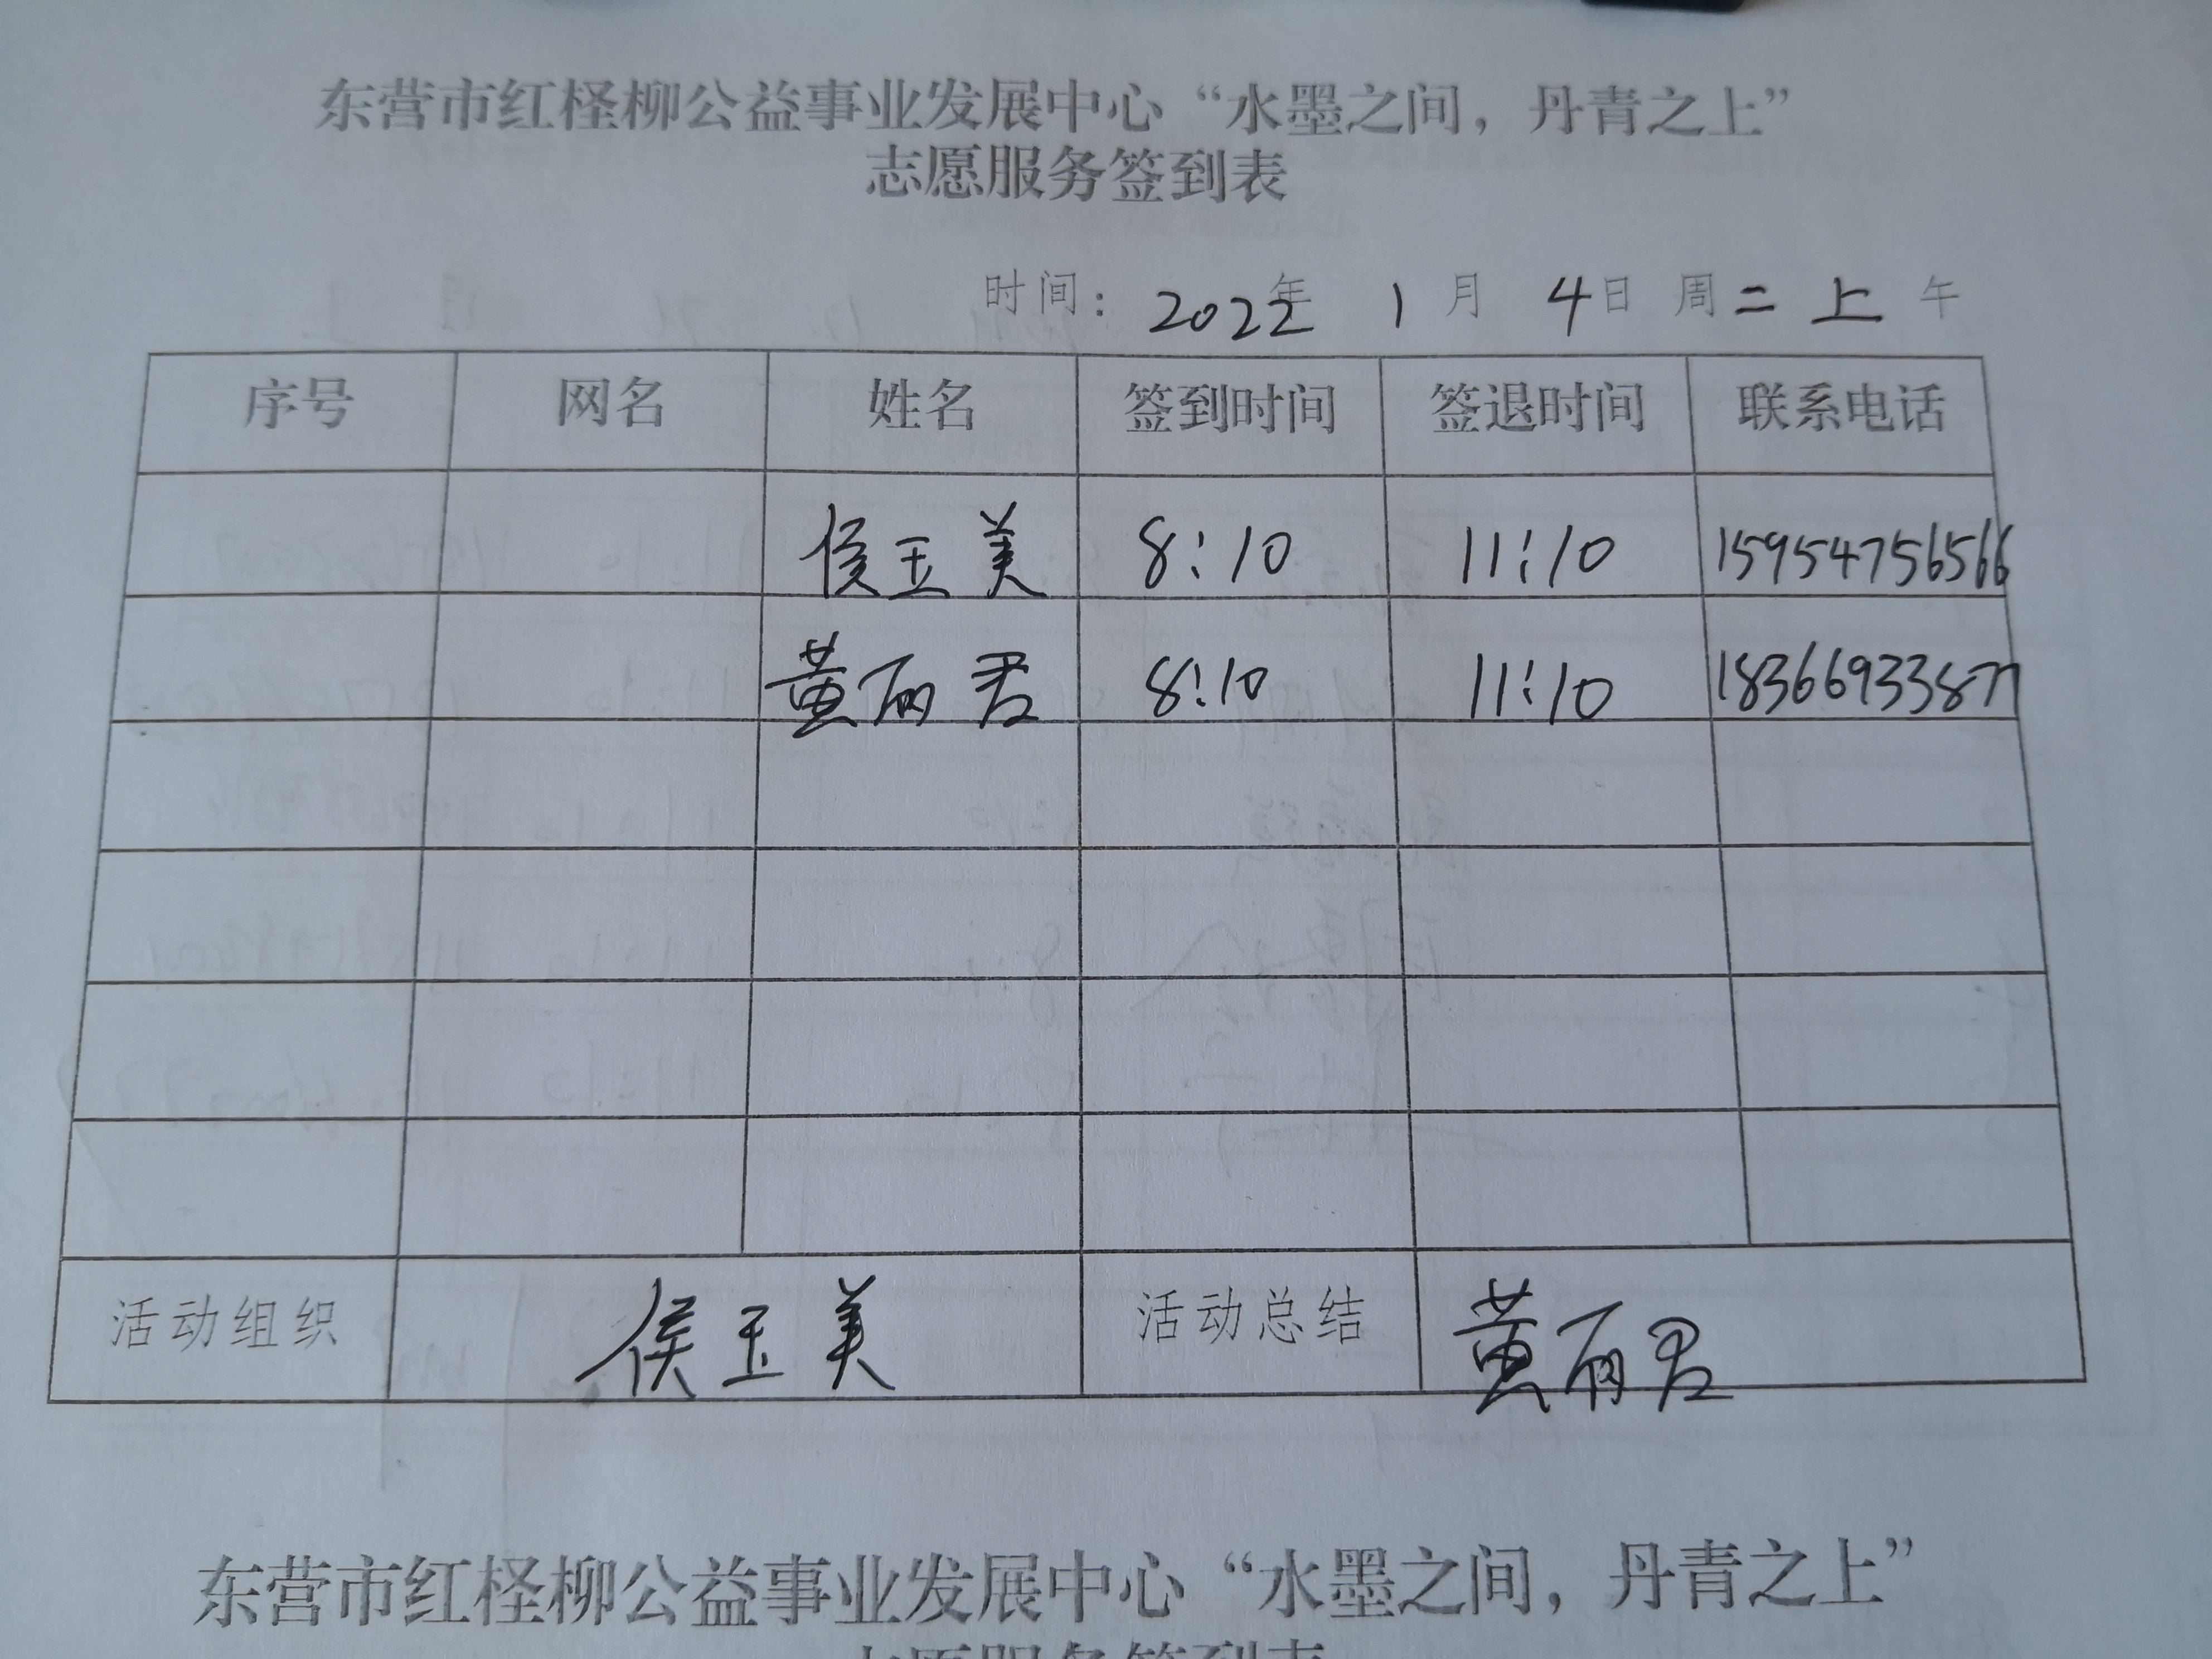 东营市红柽柳公益事业发展中心“水墨之间，丹青之上”
志愿服务签到表
时间：2022年 1月 4日 周二 上午
序号 网名 姓名 签到时间 签退时间 联系电话
侯玉美 8:10 11:10 15954756566
黄丽君 8:10 11:10 18366933877
活动组织 侯玉美 活动总结 黄丽君
东营市红柽柳公益事业发展中心“水墨之间，丹青之上”
志愿服务签到表